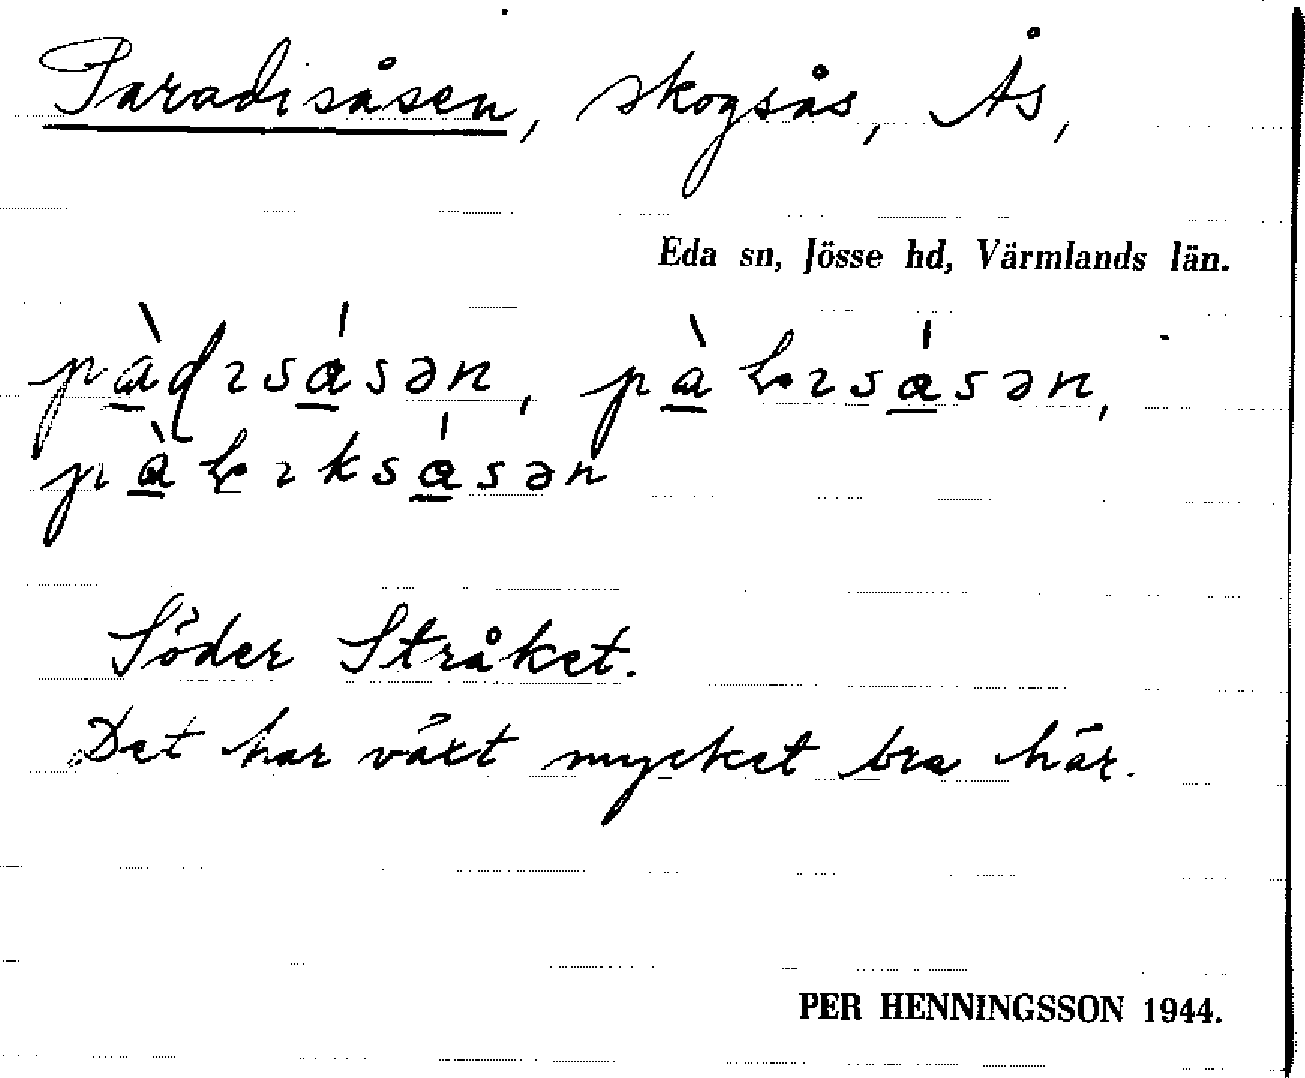 Paradisåsen, skogsås, Ås,
Eda sn, Jösse hd, Värmlands län.
Söder Stråket.
Det har växt mycket bra här.
PER HENNINGSSON 1944.